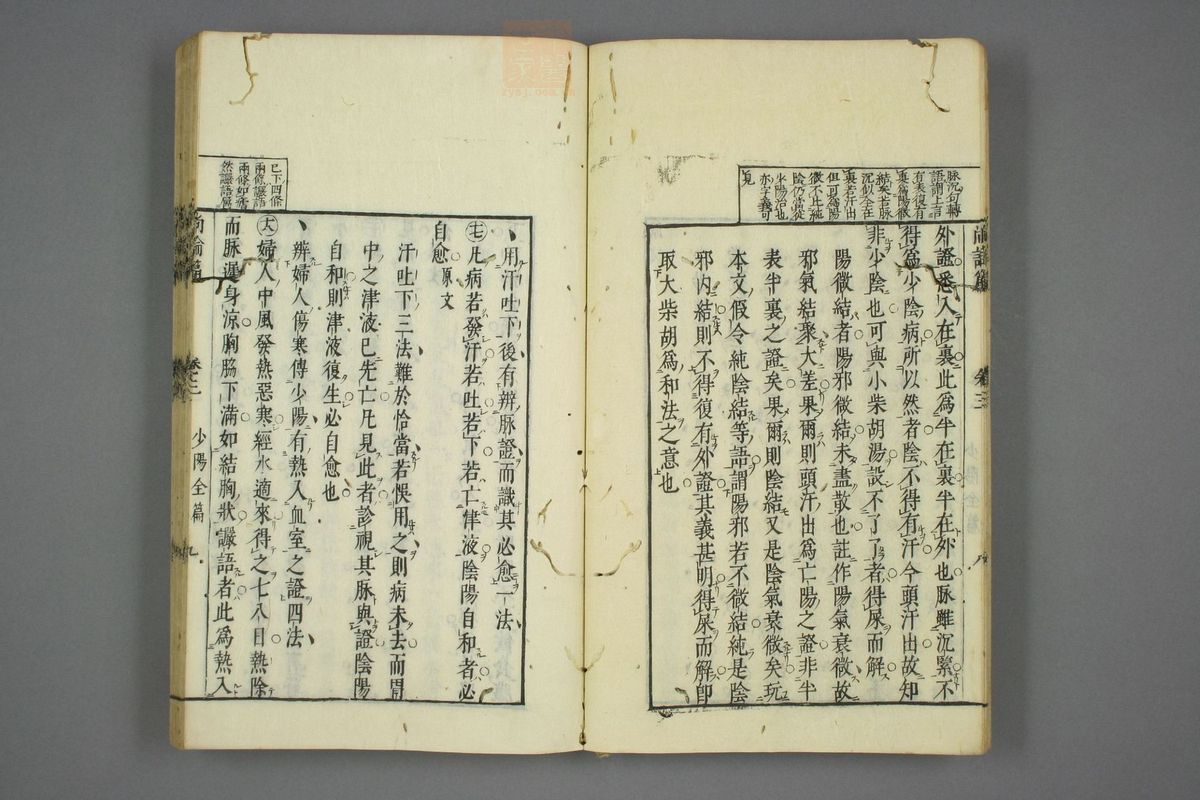 脉沉句轉
語謂上言
有表復有
裏爲陽微
結來若脉
沉似全在
裏若汗出
但可爲陽
微不止純
陰仍當從
少陽治也
亦字義可
見
外證悉入在裏此爲半在裏半在外也脉雖沉緊不
得爲少陰病所以然者陰不得有汗今頭汗出故知
非少陰也可與小柴胡湯設不了了者得屎而解
陽微結者陽邪微結未盡散也註作陽氣衰微故
邪氣結聚大差果爾則頭汗出爲亡陽之證非半
表半裏之證矣果爾則陰結又是陰氣衰微矣玩
本文假令純陰結等語謂陽邪若不微結純是陰
邪内結則不得復有外證其義甚明得屎而解即
取大柴胡爲和法之意也
卷三
八
已下四條
兩條讝語
然讝語屬
用汗吐下後有辨脉證而識其必愈一法
凡病若發汗若吐若下若亡律液陰陽自和者必
自愈 原文
汗吐下三法難於恰當若悞用之則病未去而胃
中之津液已先亡凡見此者診視其脉與證陰陽
自和則津液復生必自愈也
辨婦人傷寒傳少陽有熱入血室之證四法
婦人中風發熱惡寒經水適來得之七八日熱除
而脉遲身凉胸脇下滿如結胸狀讝語者此爲熱入
尚論篇
卷之三
少陽全篇
九